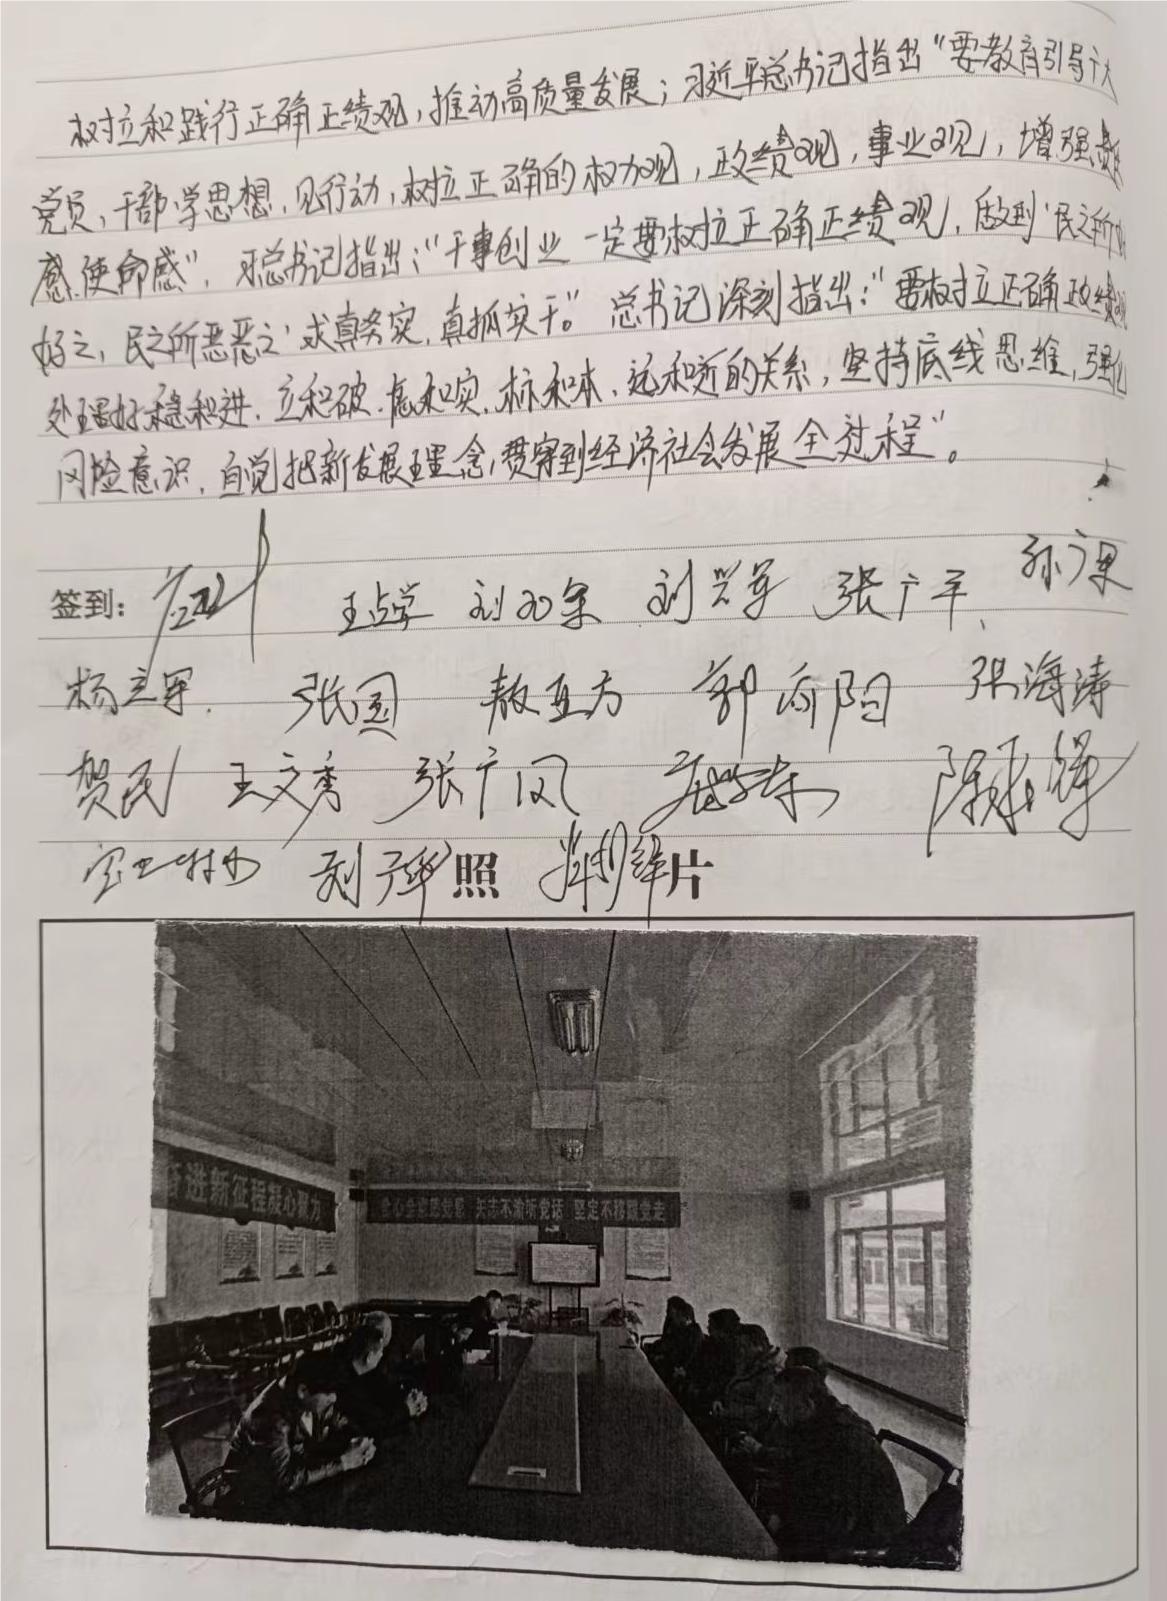 树立和践行正确正绩观，推动高质量发展；习近平总书记指出“要教育引导广大
党员，干部学思想，见行动，树立正确的权力观，政绩观，事业观，增强责任
感使命感”，习总书记指出：“干事创业一定要树立正确正绩观，做到‘民之所好
好之，民之所恶恶之’求真务实，真抓实干。”总书记深刻指出：“要树立正确政绩观
处理好稳和进、立和破、虚和实、标和本、远和近的关系，坚持底线思维，强化
风险意识，自觉把新发展理念，贯穿到经济社会发展全过程”。
签到： 王占学 刘兴军 张广平
杨立军 张国 敖直方 郭向阳 张海涛
贺民 王文秀 张广凤
照片
奋进新征程凝心聚力
全心全意跟党走 矢志不渝听党话 坚定不移跟党走